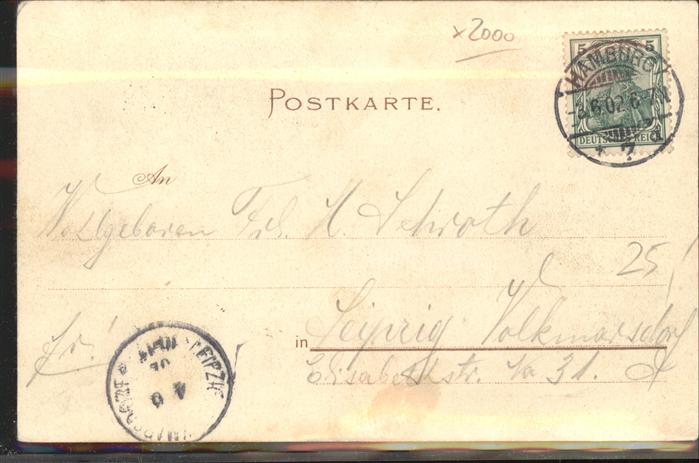 x2000
5 5
HAMBURG
6.02.6-7N
DEUTSCHES REICH
* 7
POSTKARTE.
An
Wohlgeboren Frl. H. Schroth
25
in Leipzig Volkmarsdorf
Elisabethstr. No 31.
LEIPZIG
4 6